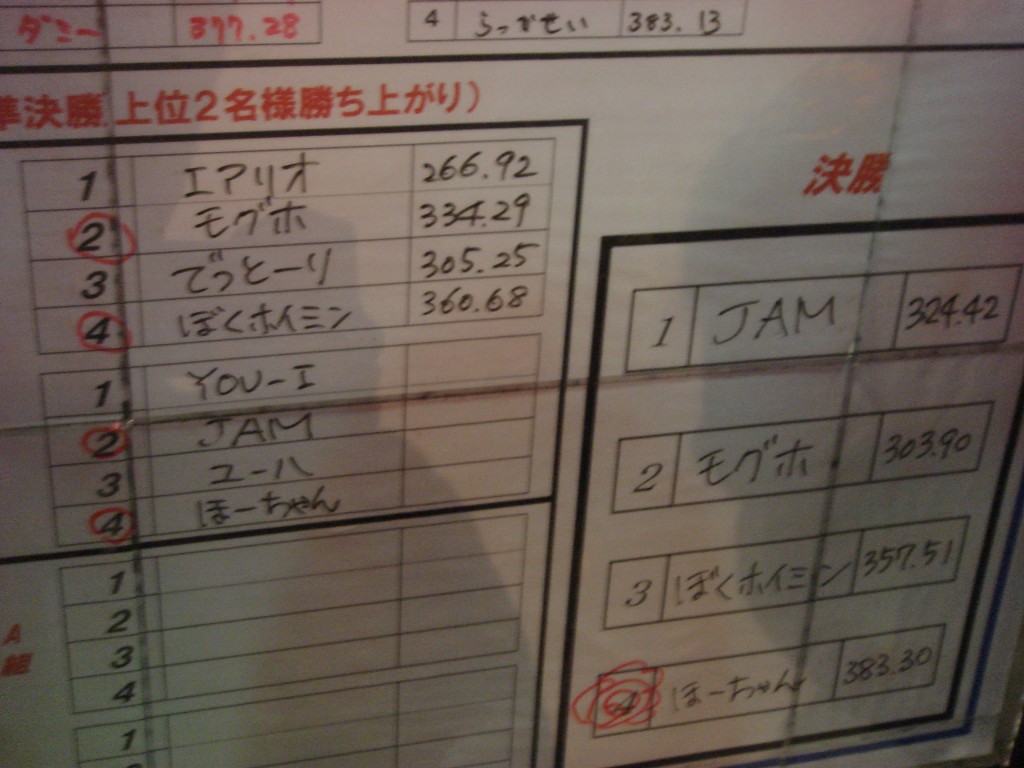 ダミー 377.28
4 らっかせい 383.13
準決勝 上位2名様勝ち上がり)
1 エアリオ 266.92
2 モグホ 334.29
3 でっとーり 305.25
4 ぼくホイミン 360.68
1 YOU-I
2 JAM
3 ユーハ
4 ほーちゃん
A組
1
2
3
4
1
決勝
1 JAM 324.42
2 モグホ 303.90
3 ぼくホイミン 357.51
4 ほーちゃん 383.30